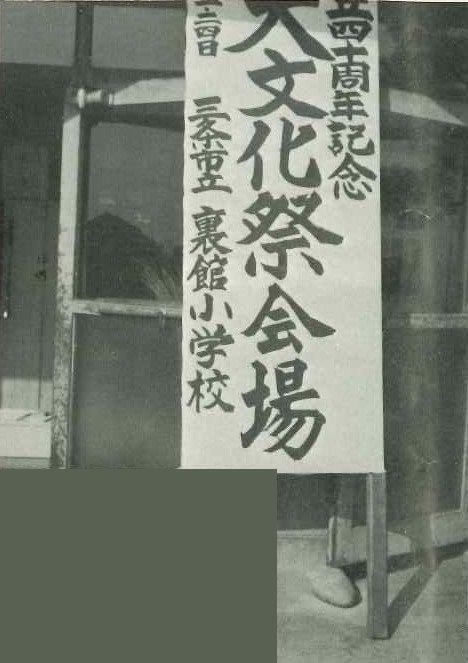 立四十周年記念
大文化祭会場
・二四日 三条市立 裏館小学校